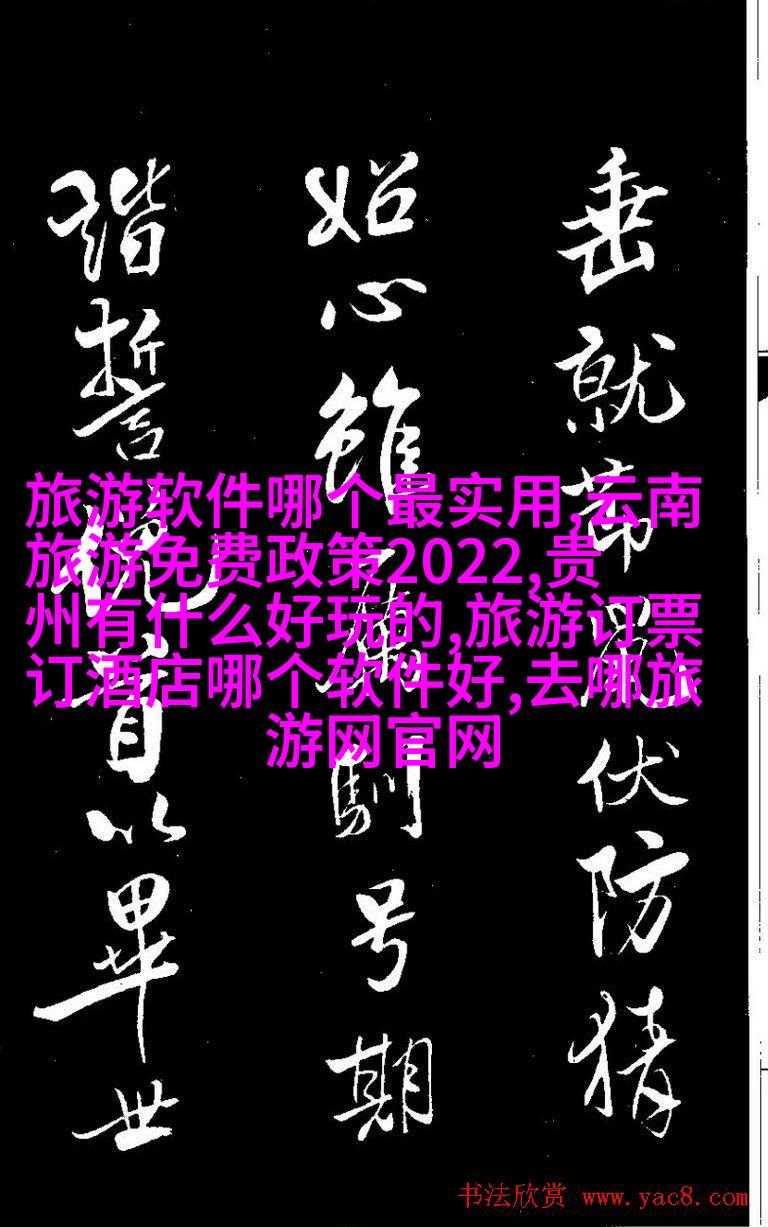 垂就伏防猜
始心雖馴号期
誓首以畢世
旅游软件哪个最实用,云南
旅游免费政策2022,贵
州有什么好玩的,旅游订票
订酒店哪个软件好,去哪旅
游网官网
书法欣赏 www.yac8.com